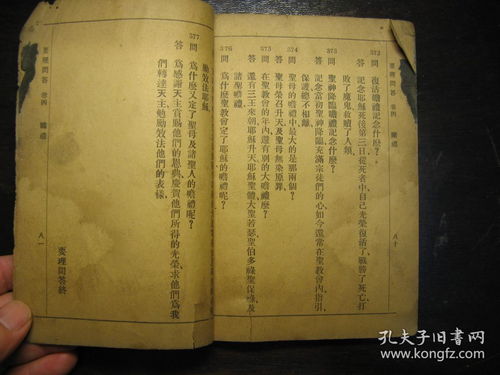 要理問答 卷四 瞻禮
八十
372 問 復活瞻禮記念什麼?
答 記念耶穌死後第三日從死者中、自己光榮復活了、戰勝了死亡、打
敗了魔鬼救贖了人類、
373 問 聖神降臨瞻禮記念什麼?
答 記念當初聖神降臨充滿宗徒們的心、如今還常在聖教會內指引、
保護總不相離、
374 問 聖母的瞻禮中最大的是那兩個?
答 聖母榮召升天及聖母無染原罪、
375 問 在聖教會的年內還有別的大瞻禮麼?
答 還有三王來朝耶穌升天耶穌聖體大聖若瑟聖伯多祿聖保祿及
諸聖瞻禮、
376 問 爲什麼聖教會定了耶穌的瞻禮呢?
勵效法耶穌、
377 問 爲什麼又定了聖母及諸聖人的瞻禮呢?
答 爲感謝天主賞賜他們的恩典慶賀他們所得的光榮、求他們爲我
們轉達天主勉勵效法他們的表樣、
要理問答終
要理問答 卷四 瞻禮
八一
孔夫子旧书网
www.kongfz.com